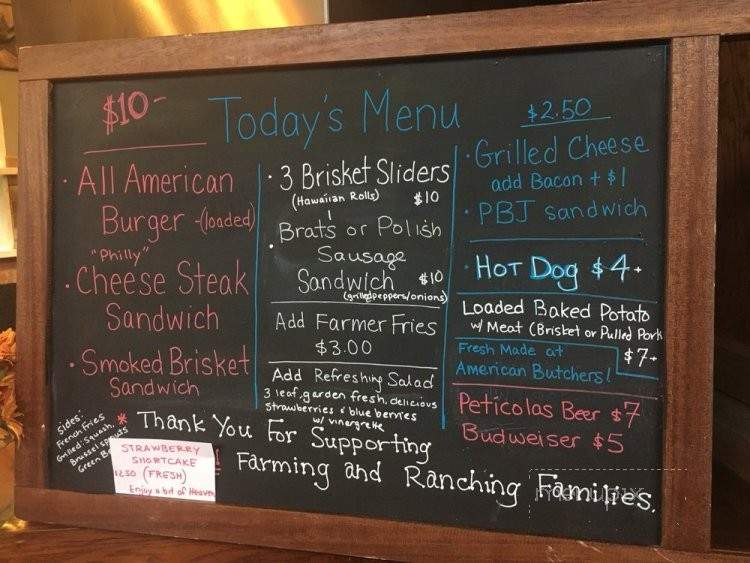 Today's Menu
$10-
All American
Burger -(loaded)
"Philly"
Cheese Steak
Sandwich
Smoked Brisket
Sandwich
sides:
French Fries
Grilled: Squash,
Brussel sprouts
Green
3 Brisket Sliders
(Hawaiian Rolls) $10
Brats or Polish
Sausage
Sandwich $10
(grilled peppers/onions)
Add Farmer Fries
$3.00
Add Refreshing Salad
3 leaf, garden fresh, delicious
strawberries & blueberries
w/ vinergrette
$2.50
Grilled Cheese
add Bacon + $1
PBJ sandwich
Hot Dog $4+
Loaded Baked Potato
w/ Meat (Brisket or Pulled Pork
$7+
Fresh Made at
American Butchers!
Peticolas Beer $7
Budweiser $5
* Thank You For Supporting
Farming and Ranching Families.
STRAWBERRY
SHORTCAKE
(FRESH)
Enjoy a bit of Heaven